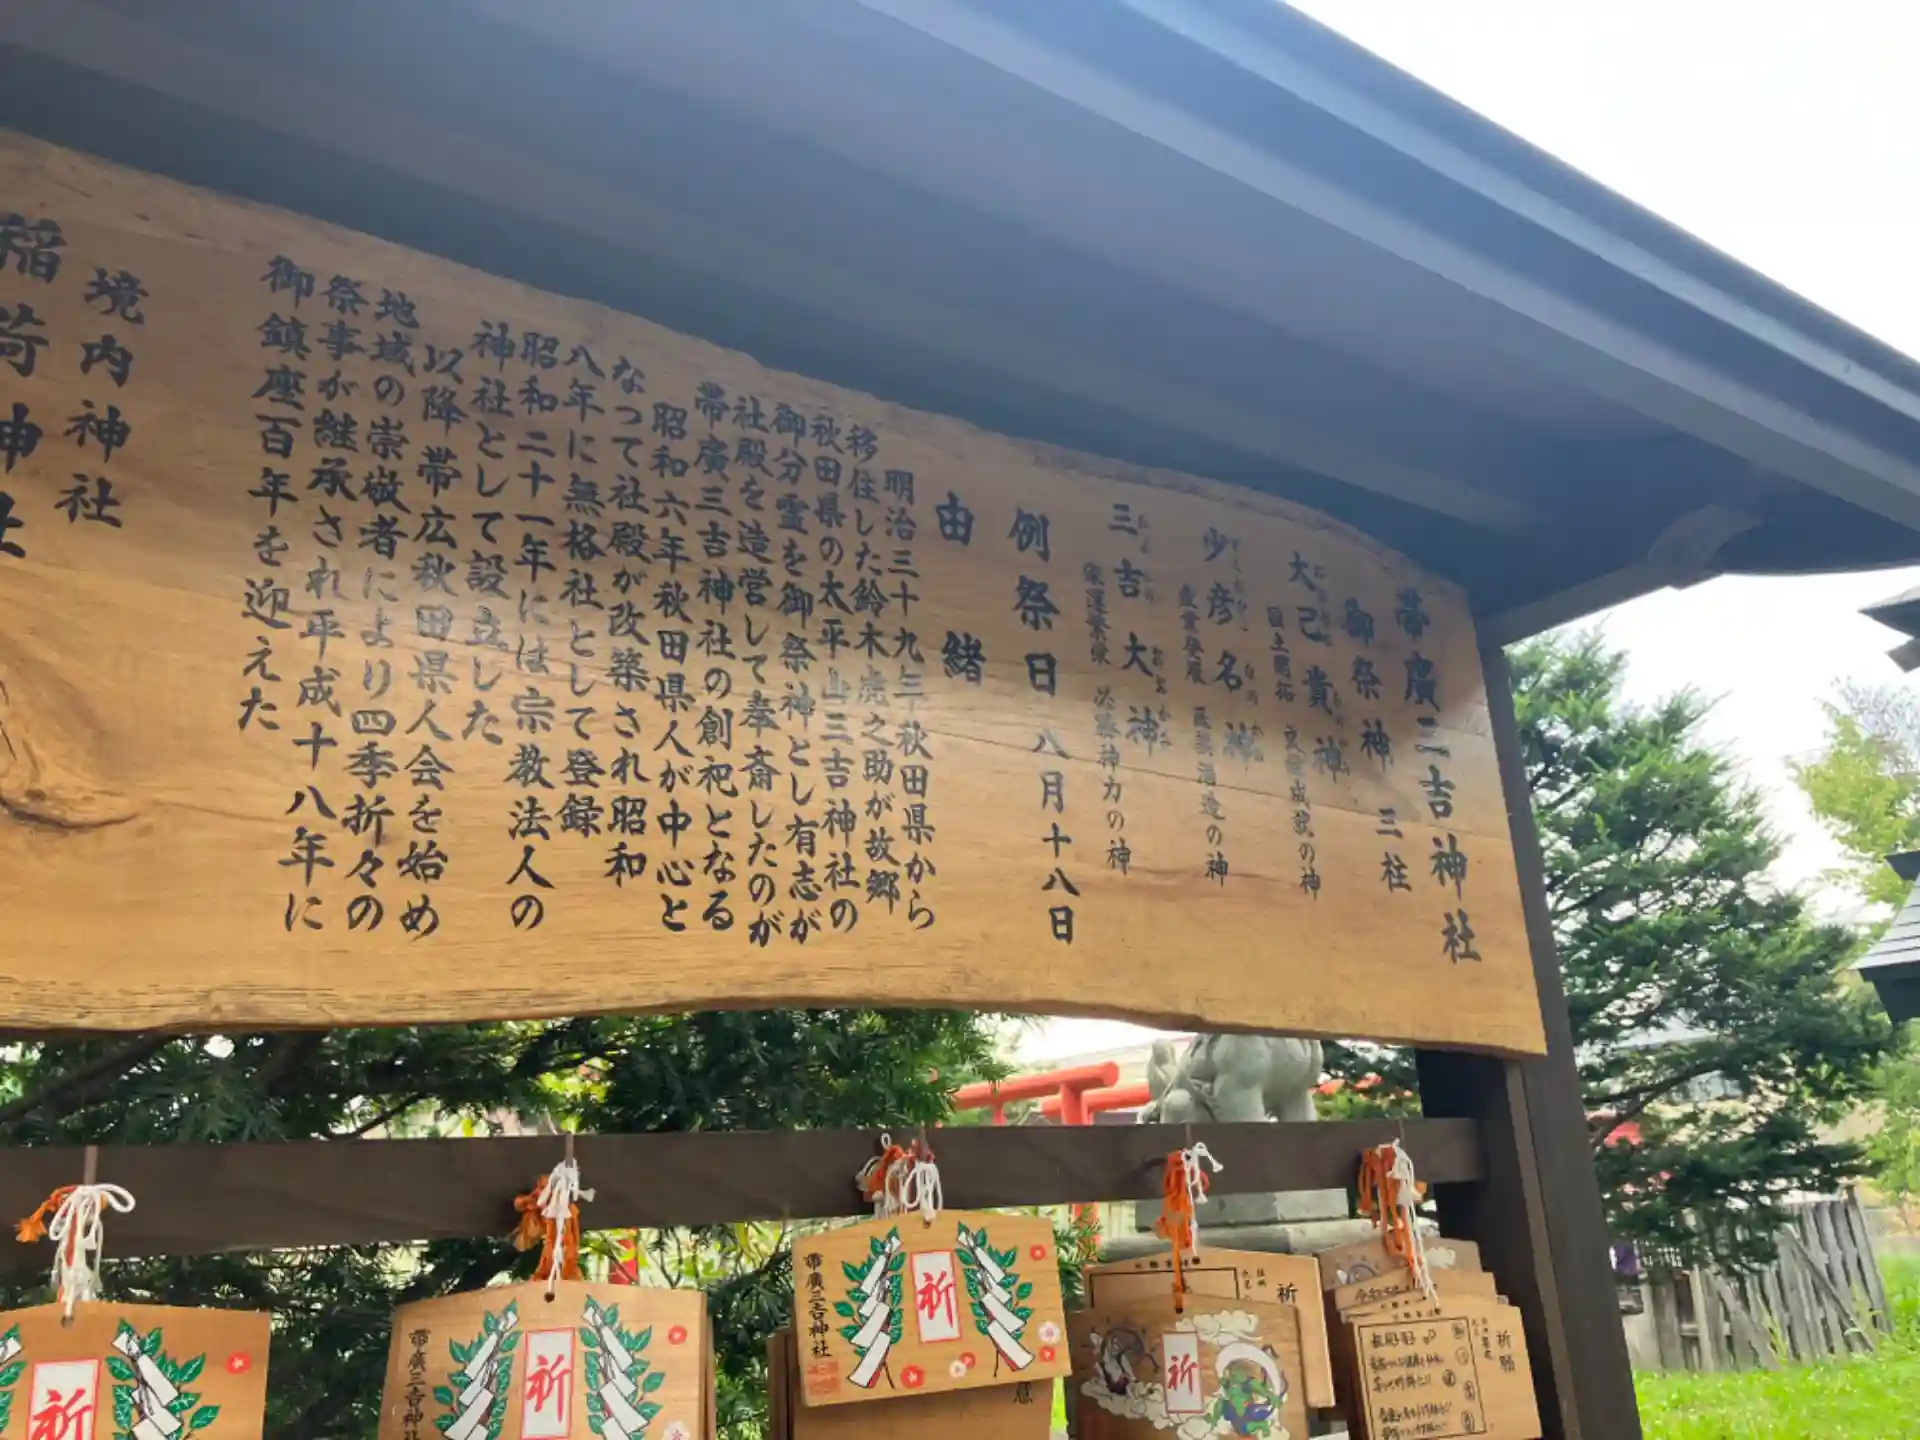 帯廣三吉神社
御祭神 三柱
大己貴神
国土開拓 交渉成就の神
少彦名神
産業発展 医薬酒造の神
三吉大神
家運繁栄 必勝神力の神
例祭日 八月十八日
由緒
明治三十九年秋田県から
移住した鈴木虎之助が故郷
秋田県の太平山三吉神社の
御分霊を御祭神とし有志が
社殿を造営して奉斎したのが
帯廣三吉神社の創祀となる
昭和六年秋田県人が中心と
なって社殿が改築され昭和
八年に無格社として登録
昭和二十一年には宗教法人の
神社として設立した
以降帯広秋田県人会を始め
地域の崇敬者により四季折々の
祭事が継承され平成十八年に
御鎮座百年を迎えた
境内神社
稲荷神社
祈
帯廣三吉神社
祈
帯廣三吉神社
祈
祈
祈
祈願